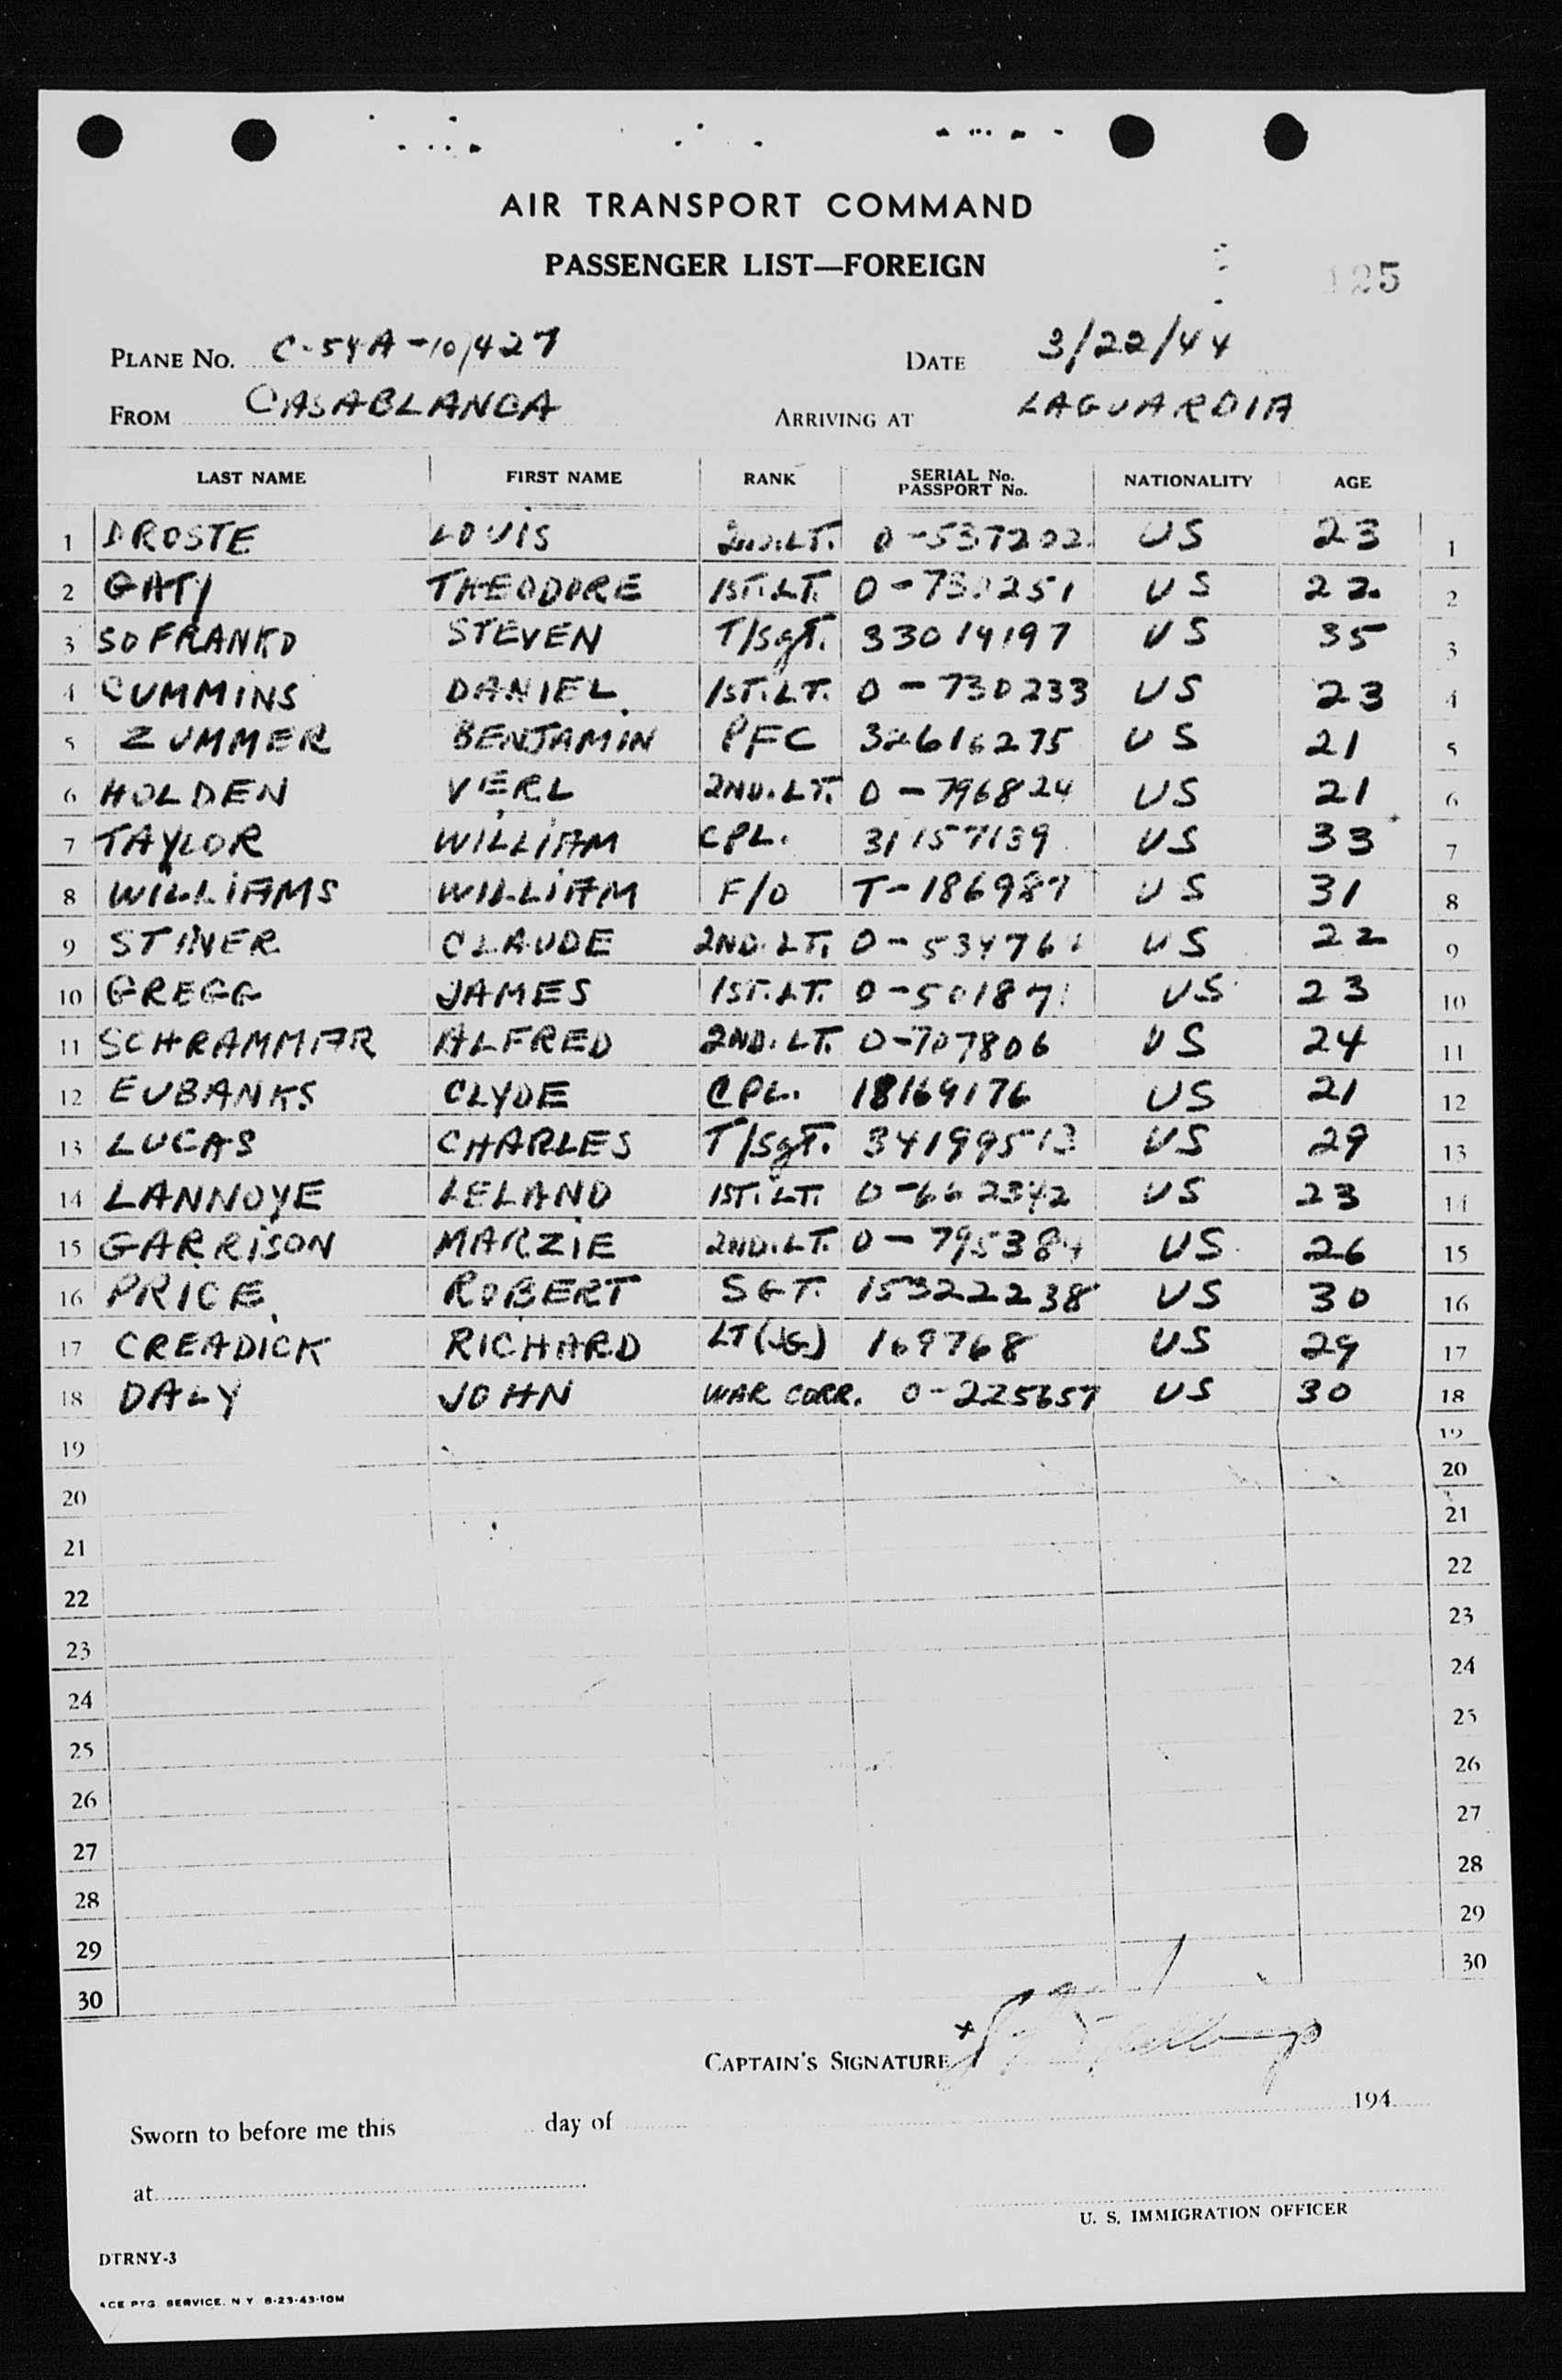 AIR TRANSPORT COMMAND
PASSENGER LIST—FOREIGN
125
PLANE NO. C-54A-10/427 DATE 3/22/44
FROM CASABLANCA ARRIVING AT LAGUARDIA
LAST NAME FIRST NAME RANK SERIAL No. PASSPORT No. NATIONALITY AGE
1 DROSTE LOUIS 2ND.LT. O-537202 US 23 1
2 GATY THEODORE 1ST.LT. O-730251 US 22 2
3 SOFRANKO STEVEN T/Sgt. 33014197 US 35 3
4 CUMMINS DANIEL 1ST.LT. O-730233 US 23 4
5 ZUMMER BENJAMIN PFC 32616275 US 21 5
6 HOLDEN VERL 2ND.LT. O-796824 US 21 6
7 TAYLOR WILLIAM CPL. 31157139 US 33 7
8 WILLIAMS WILLIAM F/O T-186987 US 31 8
9 STINER CLAUDE 2ND.LT. US 22 9
10 GREGG JAMES 1ST.LT. O-501871 US 23 10
11 SCHRAMMAR ALFRED 2ND.LT. O-707806 US 24 11
12 EUBANKS CLYDE CPL. 18169176 US 21 12
13 LUCAS CHARLES T/Sgt. 34199513 US 29 13
14 LANNOYE LELAND 1ST.LT. O-662342 US 23 14
15 GARRISON MARZIE 2ND.LT. O-795384 US 26 15
16 PRICE ROBERT SGT. 15322238 US 30 16
17 CREADICK RICHARD LT(JG) 169768 US 29 17
18 DALY JOHN WAR CORR. O-225657 US 30 18
19 19
20 20
21 21
22 22
23 23
24 24
25 25
26 26
27 27
28 28
29 29
30 30
CAPTAIN'S SIGNATURE x
Sworn to before me this day of 194
at
U. S. IMMIGRATION OFFICER
DTRNY-3
ACE PTG. SERVICE, N Y 8-23-43-10M